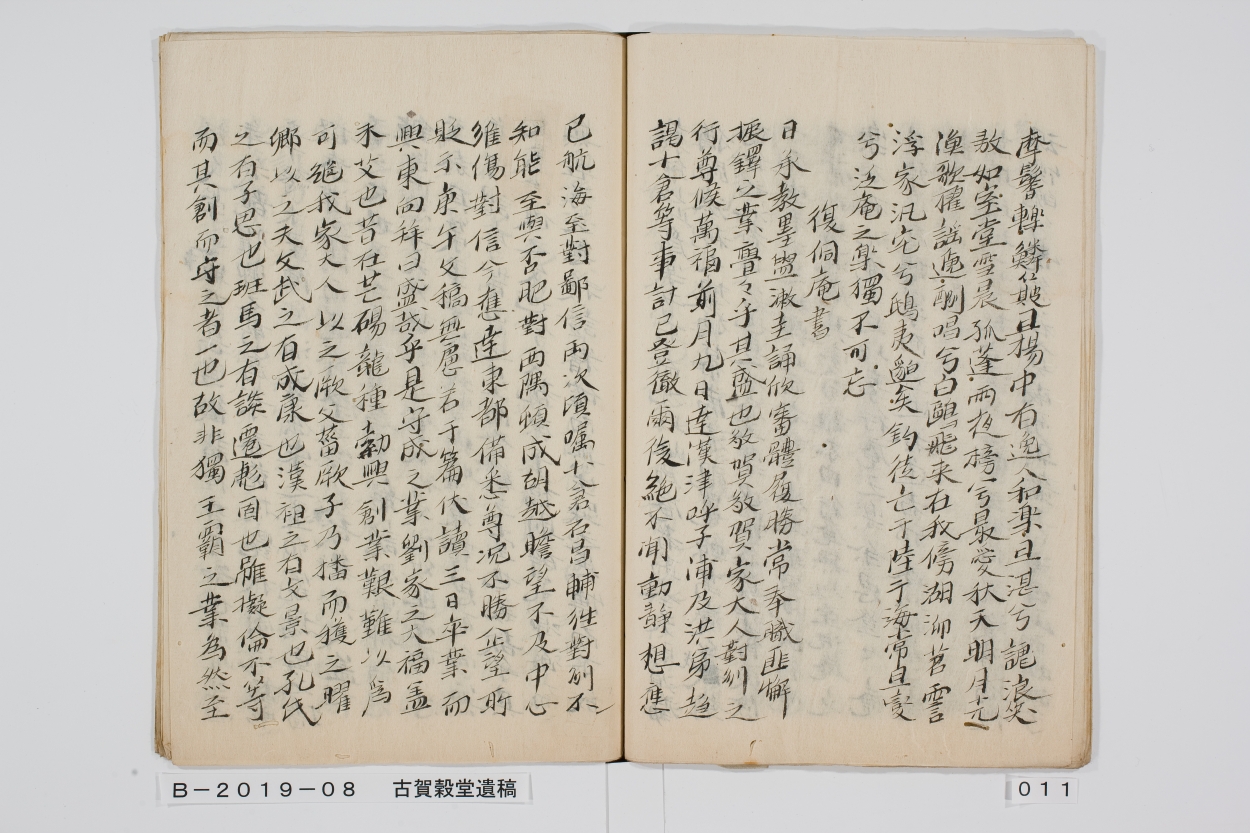 鼓如室堂雪晨孤蓬雨夜榜兮最愛秋天明月
漁歌櫂謳迎剛唱兮白鷗飛来在我傍湖泖苕霅
浮家汎宅兮鴟夷邈矣釣徒亡于陸于海常且
兮泛庵之樂獨不可忘
復侗庵書
日承教墨盥漱圭誦欣審體履勝常奉職匪懈
振鐸之業亹々乎其盛也敬賀敬賀家大人對州之
行尊候萬福前月九日達漢津呼子浦及洪弟趨
謁十倉等事計已登徹爾後絶不聞動静想應
已航海至對鄙信両次頃囑十倉石昌輔往對州不
知能至與否肥對両隅頓成胡越瞻望不及中心
維傷對信今應達東都備悉尊况不勝企望所
貶示庚午文稿無慮若干篇伏讀三日卒業而
興東向拜曰盛哉乎是守成之業劉家之大福盖
未艾也昔在芒碭龍種勃興創業艱難以為
可繼我家大人以之厥父菑厥子乃播而獲之曜
卿以之夫文武之有成康也漢祖之有文景也孔氏
之有子思也班馬之有談遷彪固也雖擬倫不等
而其創而守之者一也故非獨王覇之業為然至
B－２０１９－０８　古賀穀堂遺稿
０１１